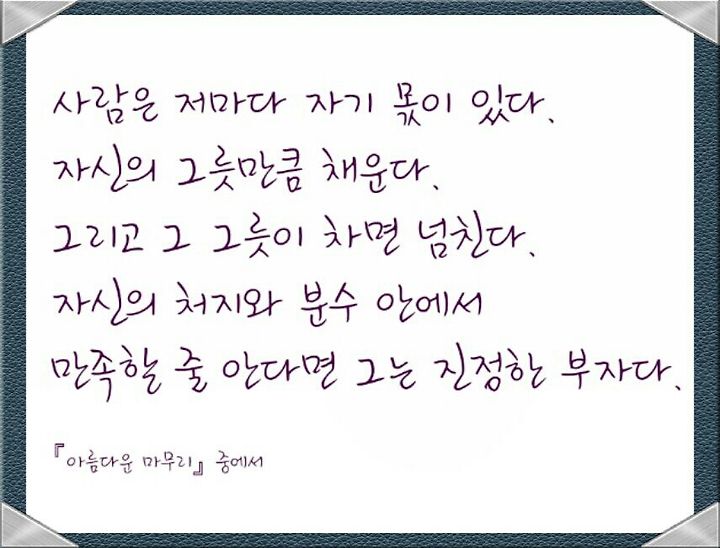 사람은 저마다 자기 몫이 있다.
자신의 그릇만큼 채운다.
그리고 그 그릇이 차면 넘친다.
자신의 처지와 분수 안에서
만족할 줄 안다면 그는 진정한 부자다.
『아름다운 마무리』 중에서